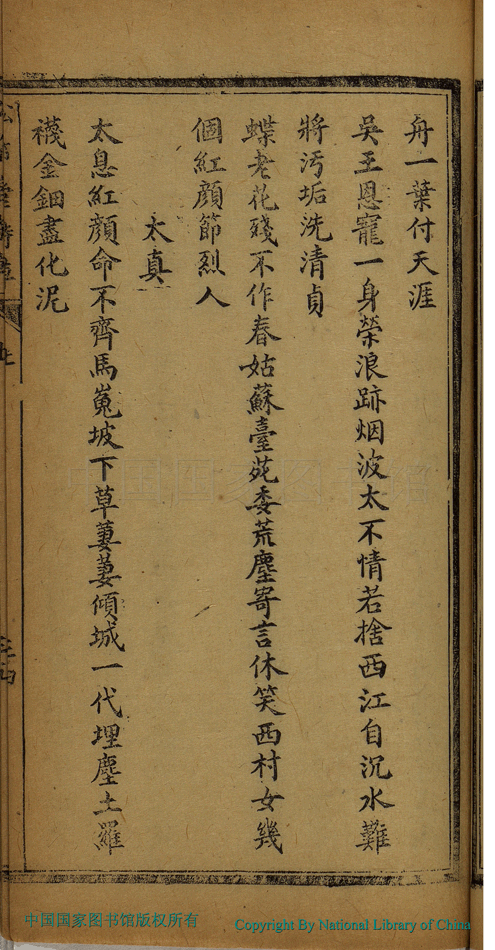 舟一葉付天涯
吳王恩寵一身榮浪跡烟波太不情若捨西江自沉水難
將污垢洗清貞
蝶老花殘不作春姑蘇臺苑委荒塵寄言休笑西村女幾
個紅顏節烈人
太真
太息紅顏命不齊馬嵬坡下草萋萋傾城一代埋塵土羅
襪金鈿盡化泥
中国国家图书馆
中国国家图书馆版权所有
Copyright By National Library of China